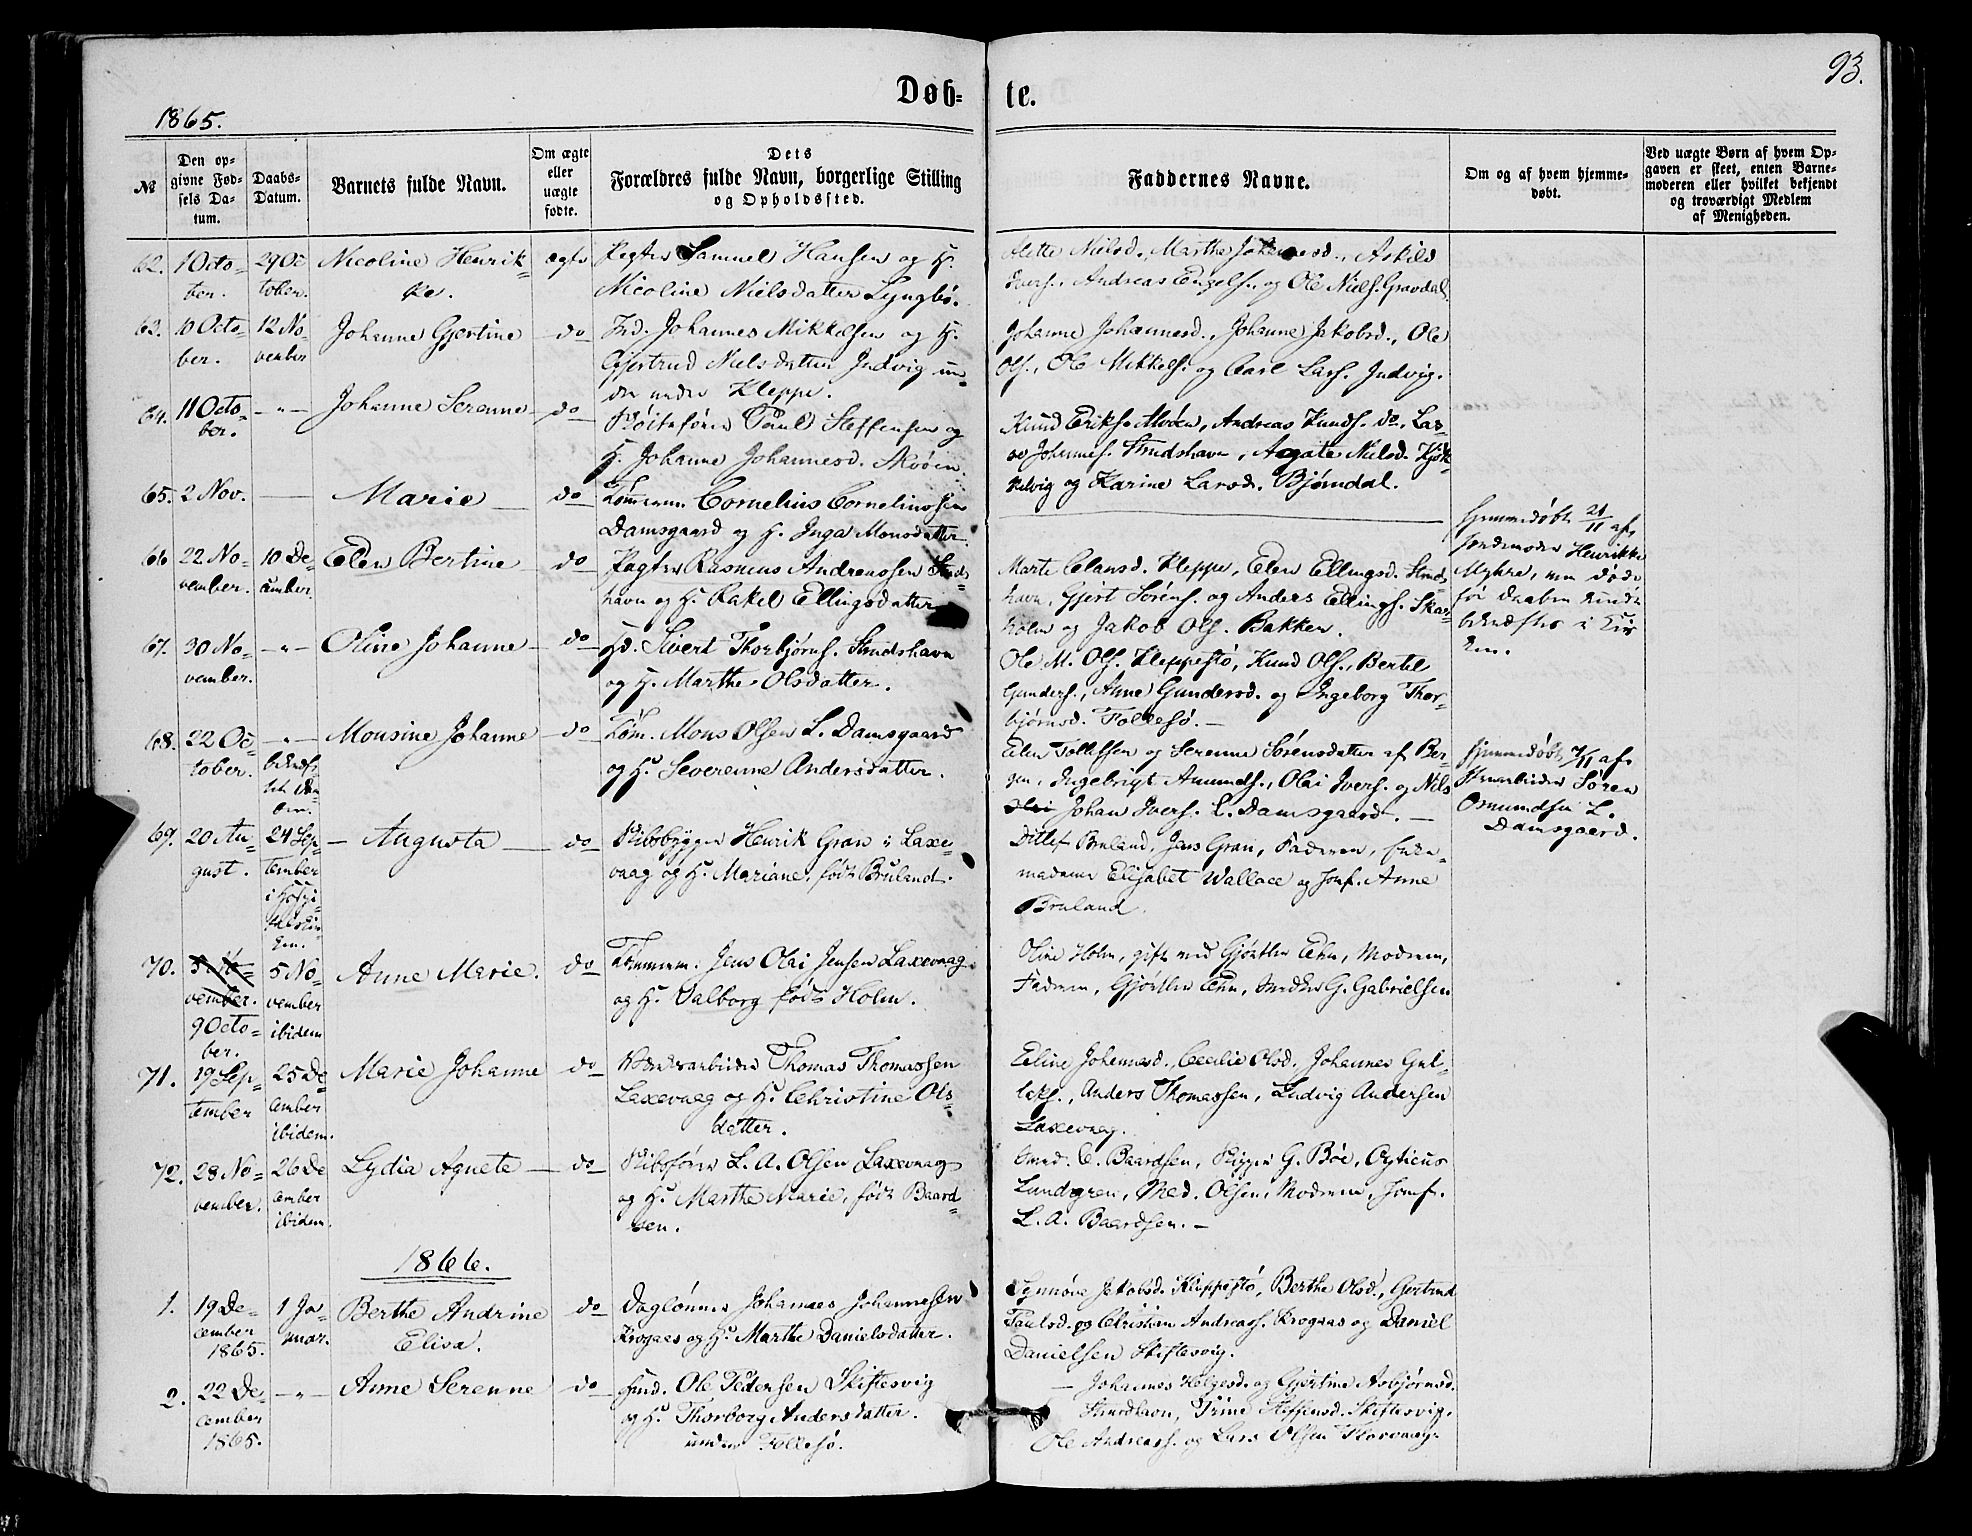 93.
Døb-
te.
1865.
№
Den op-
givne Fød-
sels Da-
tum.
Daabs-
Datum.
Barnets fulde Navn.
Om ægte
eller
uægte
fødte.
Dets
Forældres fulde Navn, borgerlige Stilling
og Opholdssted.
Faddernes Navne.
Om og af hvem hjemme-
døbt.
Ved uægte Børn af hvem Op-
gaven er skeet, enten Barne-
moderen eller hvilket bekjendt
og troværdigt Medlem
af Menigheden.
62.
1 Octo-
ber.
29 Oc
tober.
Nicoline Henrik-
ke.
ægte
Pagter Samuel Hansen og H.
Nicoline Nielsdatter Lyngbø.
Nielsd., Marthe Johannesd., Askild
Ivers., Andreas Engels. og Ole Niels. Gravdal.
63.
10 Octo-
ber.
12 No-
vember
Johanne Gjertine
do
Ind. Johannes Mikkelsen og H.
Gjertrud Nielsdatter Indvig un-
der Kleppe.
Johanne Johannesd., Johanne Jakobsd., Ole
Ols., Ole Mikkels. og Carl Lars. Indvig.
64.
11 Octo-
ber.
-"-
Johanne Serenne
do
Paul Steffensen og
H. Johanne Johannesd. Alvøen.
Knud Eriks. Alvøen, Andreas Knuds. do, Lar-
Johannes. Strudshavn, Agate Nielsd. Kjøk-
kelvig og Karine Larsd. Bjørndal.
65.
2 Nov.
Marie
do
Tømmerm. Cornelius Corneliussen
Damsgaard og H. Inga Monsdatter.
Hjemmedøbt 21/11 af
Jordemoder Henrikke
Myhre, men døde
før Daaben kunde
bekræftes i Kir
ken.
66
22 No-
vember.
10 De-
cember
Elen Bertine
do
Pagter Rasmus Andreassen Struds-
havn og H. Rakel Ellingsdatter
Marte Clausd. Kleppe, Elen Ellingsd. Struds
havn, Gjert Sørens. og Anders Ellings. Skar-
holm og Jakob Ols. Bakken.
67.
30 No-
vember.
-"-
Oline Johanne
do
Hd. Sivert Thorbjørns. Strudshavn
og H. Marthe Olsdatter.
Ole M. Ols. Kleppestø, Knud Ols., Bertel
Gunders., Anne Gundersd. og Ingeborg Thor-
bjørnsd. Follesø.
68.
22 Oc-
tober.
-"-
bekræf-
tet Da-
ben.
Monsine Johanne
do
Tøm. Mons Olsen L. Damsgaard
og H. Severenne Andersdatter.
Elen Tollefsen og Serenne Sørensdatter af Ber-
gen, Ingebrigt Amunds., Olai Ivers. og Nils
Johan Ivers. L. Damsgaard.
Hjemmedøbt 7/11 af
Søren
Osmundsen L.
Damsgaard.
69.
20 Au-
gust.
24 Sep-
tember
i Hospi-
talskir-
ken.
Augusta
do
Skibsbygger Henrik Gran i Laxe-
vaag og H. Mariane, født Bruland.
Ditlef Bruland, Jens Gran, Faderen,
Elisabet Wallace og Jomf. Anne
Bruland.
70.
5 No-
vember.
9 Octo-
ber.
5 No-
vember
ibidem
Anne Marie.
do
Tømmerm. Jens Olai Jensen Laxevaag
og H. Valborg født Holm.
Oline Holm, gift med Gjørtler Ehn, Moderen,
Faderen, Gjørtler Ehn, G. Gabrielsen
71.
19 Sep-
tember
25 De
cember
ibidem.
Marie Johanne
do
Thomas Thomassen
Laxevaag og H. Christine Ols-
datter.
Eline Johannesd., Cecilie Olsd. Johannes Gul-
laks., Anders Thomassen, Ludvig Andersen
Laxevaag.
72.
28 No-
vember.
26 De
cember
ibidem.
Lydia Agnete
do
Skibsfører L. A. Olsen Laxevaag
og H. Marthe Marie, født Baard
sen.
E. Baardsen, Skipper G. Böe, Opticus
Lundgren, Mad. Olsen, Moderen, Jomf.
L. A. Baardsen.
1866.
1.
19 De-
cember
1865.
1 Ja-
nuar.
Berthe Andrine
Elisa.
do
Daglønner Johannes Johannesen
Krogaas og H. Marthe Danielsdatter.
Synnøve Jakobsd. Kleppestø, Berthe Olsd., Gertrud
Paulsd. og Christian Andreass. Krogaas og Daniel
Danielsen Skiftesvig.
2.
22 De-
cember
1865.
-"-
Anne Serenne
do
Hmd. Ole Pedersen Skiftesvig
og H. Thorborg Andersdatter.
under Follesø.
Johannes Helgesd. og Gjertine Asbjørnsd.
Strudshavn, Trine Steffensd. Skiftesvig.
Ole Andreass. og Lars Olsen